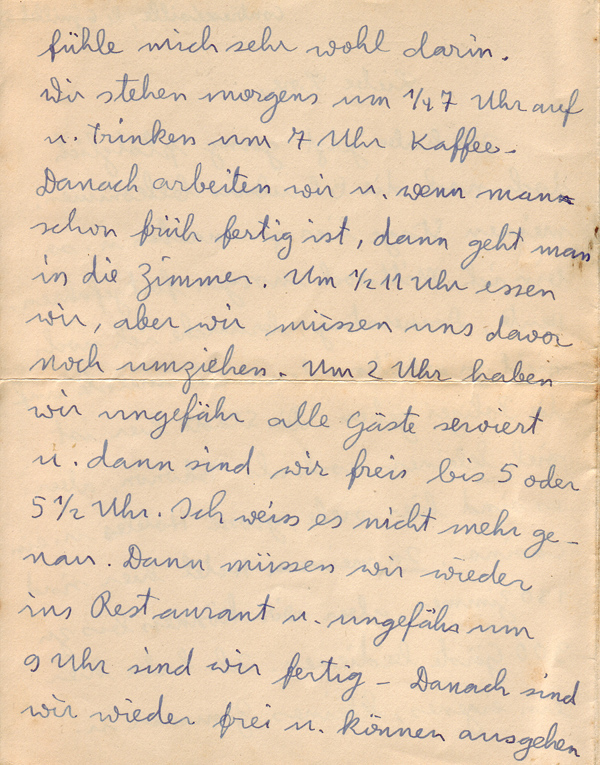 fühle mich sehr wohl darin.
Wir stehen morgens um 1/4 7 Uhr auf
u. trinken um 7 Uhr Kaffee.
Danach arbeiten wir u. wenn man
schon früh fertig ist, dann geht man
in die Zimmer. Um 1/2 11 Uhr essen
wir, aber wir müssen uns davor
noch umziehen. Um 2 Uhr haben
wir ungefähr alle Gäste serviert
u. dann sind wir frei bis 5 oder
5 1/2 Uhr. Ich weiss es nicht mehr ge-
nau. Dann müssen wir wieder
ins Restaurant u. ungefähr um
9 Uhr sind wir fertig - Danach sind
wir wieder frei u. können ausgehen